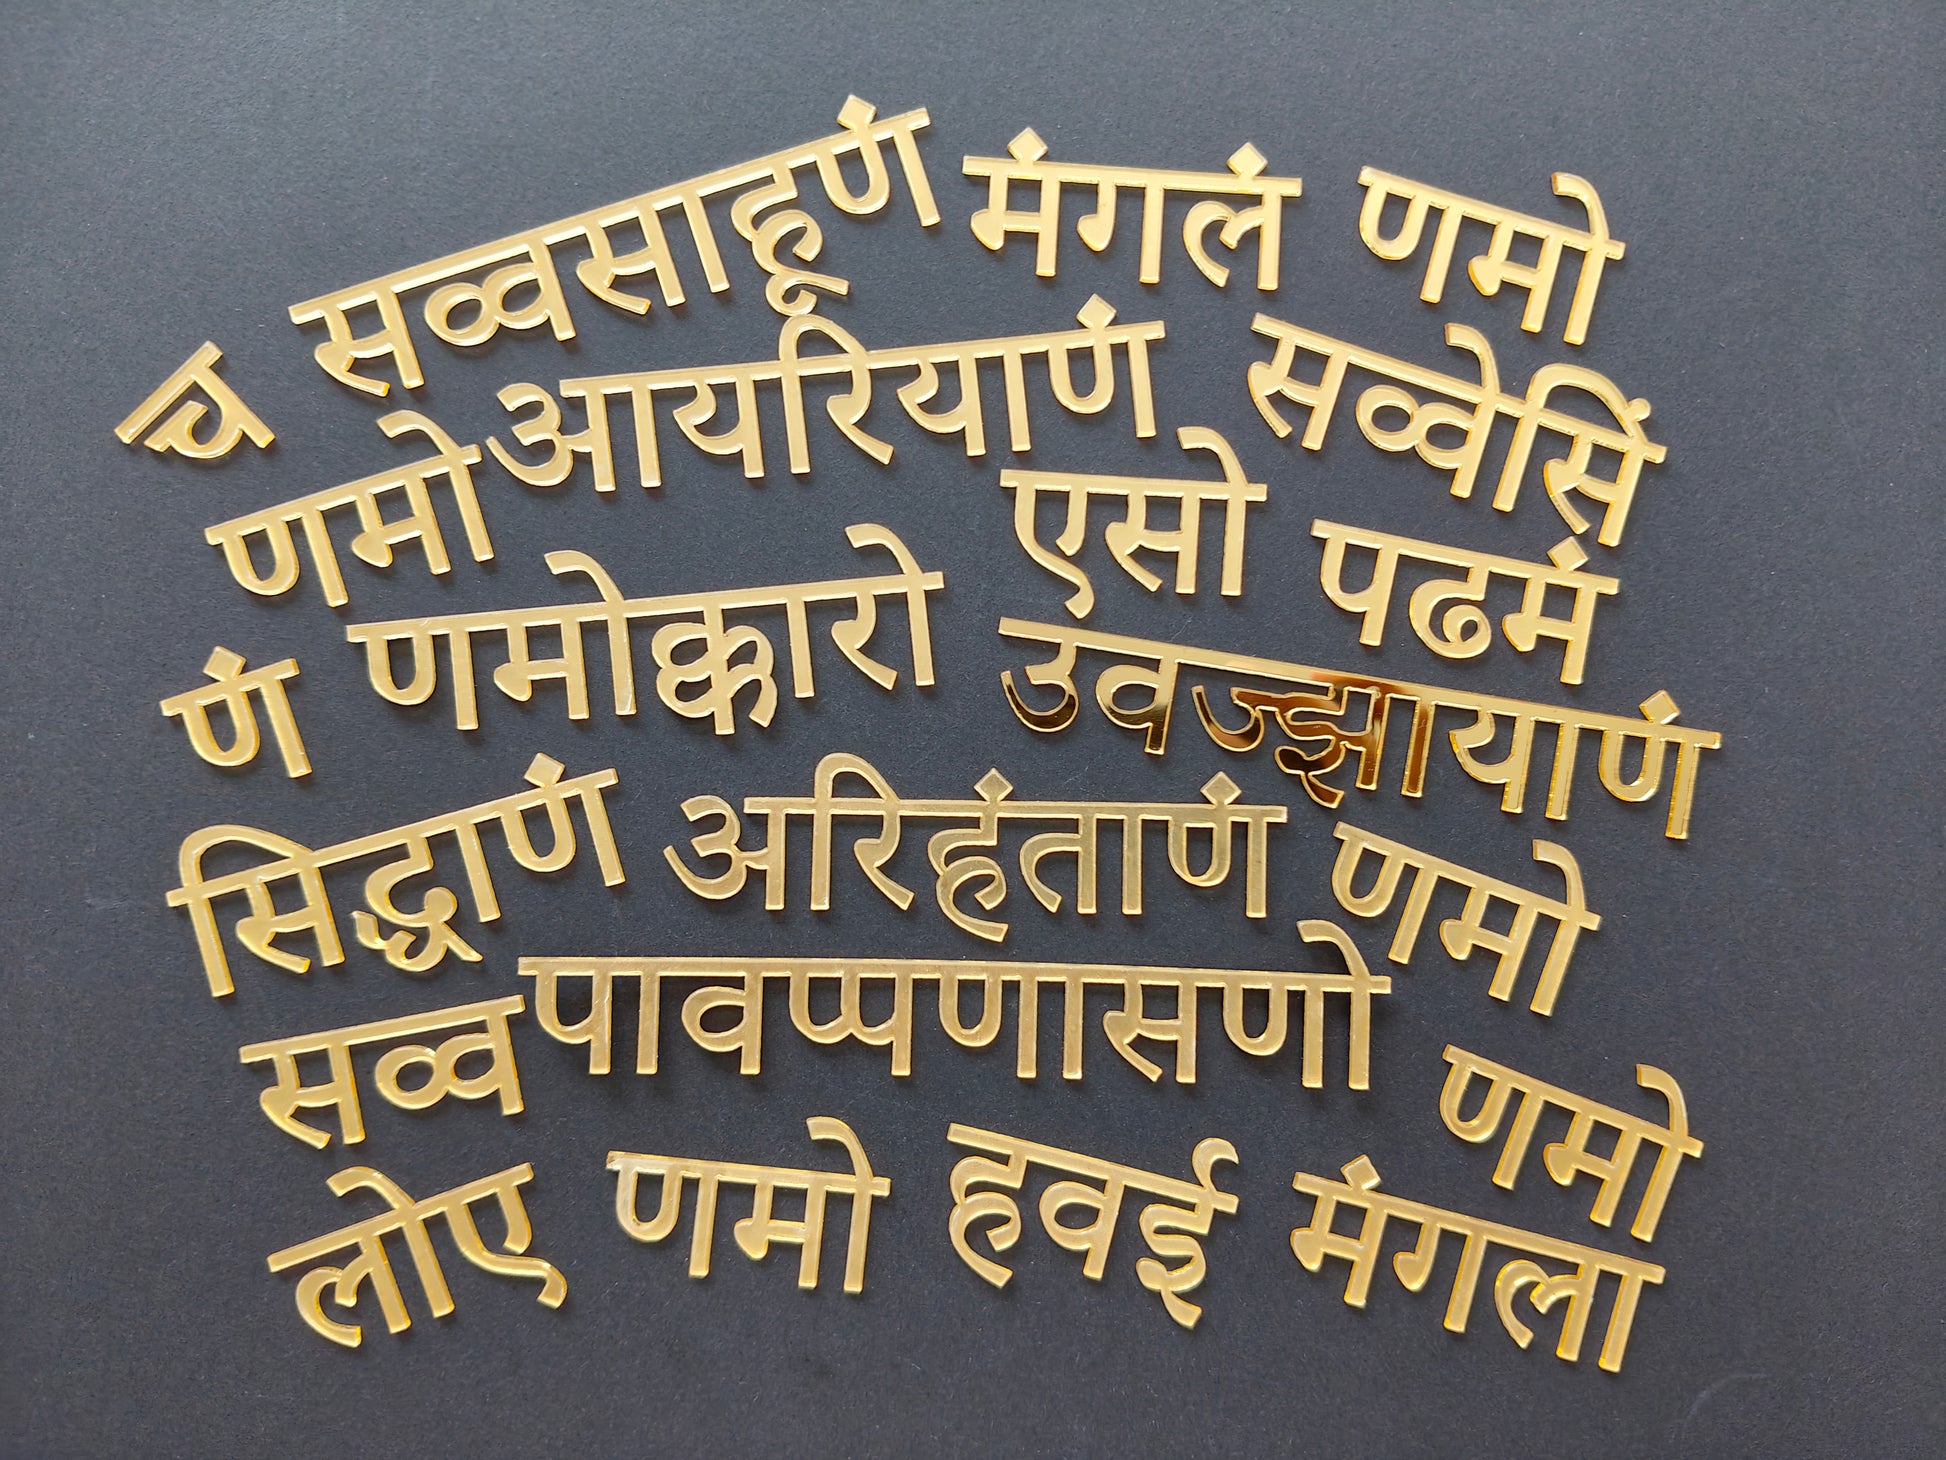 च सव्वसाहूणं मंगलं णमो
णमो आयरियाणं सव्वेसिं
एसो पढमं
णं णमोक्कारो उवज्झायाणं
सिद्धाणं अरिहंताणं णमो
सव्व पावप्पणासणो णमो
लोए णमो हवई मंगला